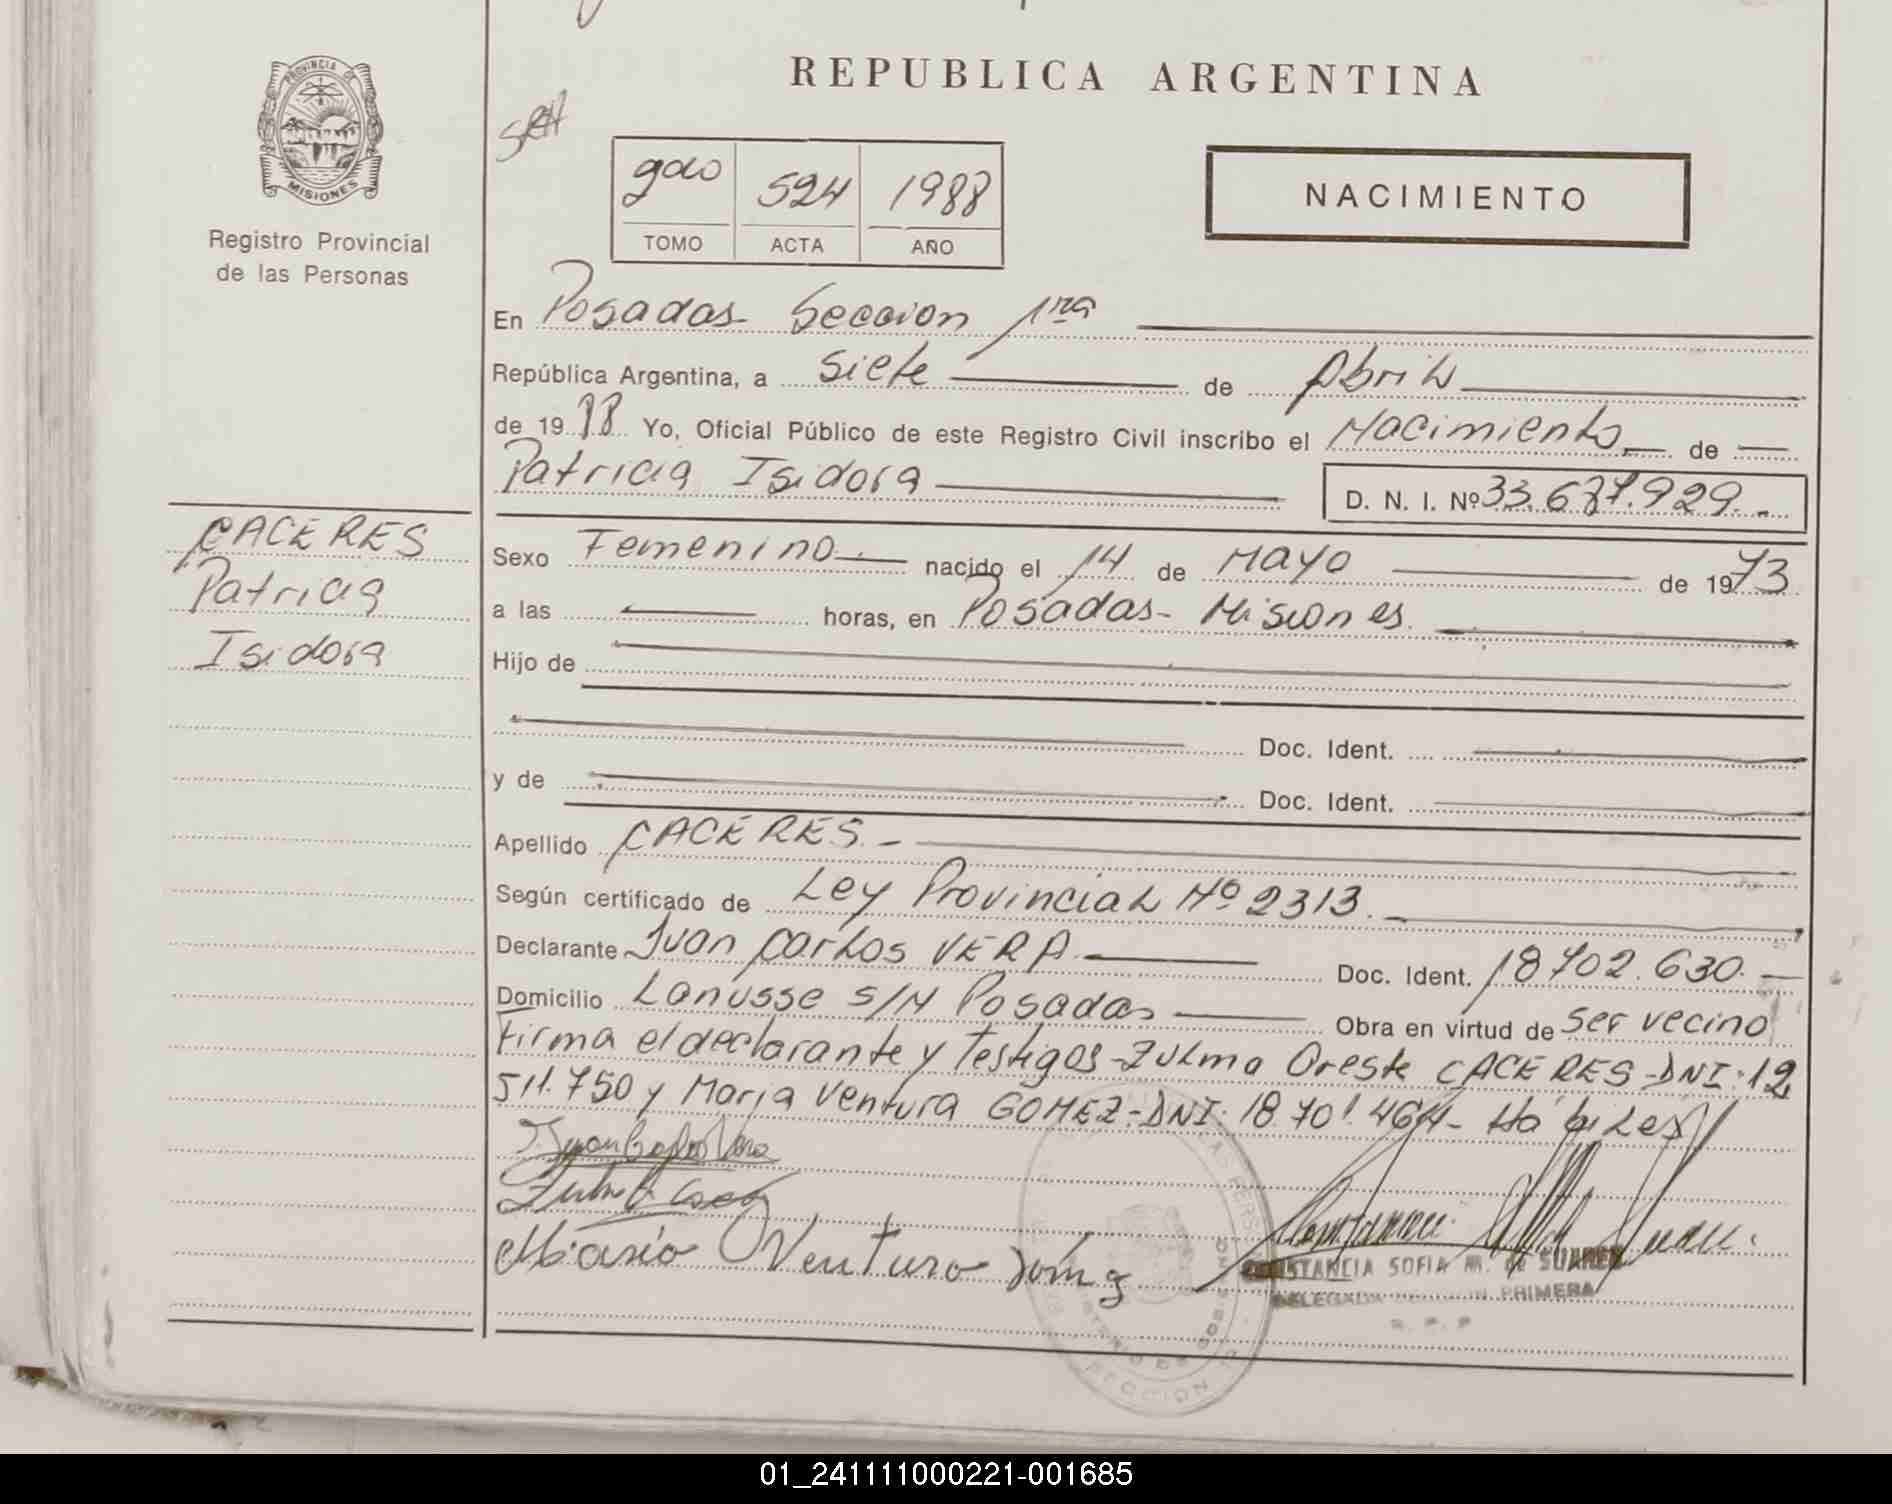 PROVINCIA DE
MISIONES
Registro Provincial
de las Personas
CACERES
Patricia
Isidora
REPUBLICA ARGENTINA
NACIMIENTO
gdo 524 1988
TOMO ACTA AÑO
En Posadas Seccion 1ra
República Argentina, a siete de Abril
de 1988 Yo, Oficial Público de este Registro Civil inscribo el Nacimiento de
Patricia Isidora
D. N. I. Nº 33.637.929.-
Sexo Femenino nacido el 14 de Mayo de 1973
a las horas, en Posadas - Misiones
Hijo de
Doc. Ident.
y de Doc. Ident.
Apellido CACERES.-
Según certificado de Ley Provincial Nº 2313.
Declarante Juan Carlos VERA Doc. Ident. 18702.630.
Domicilio Lanusse S/N Posadas Obra en virtud de ser vecino
Firma el declarante y Testigos - Zulma Oreste CACERES - DNI: 12
511.750 y Maria Ventura GOMEZ - DNI: 18.701.464 - Hábiles
Juan Carlos Vera
Maria Ventura Gómez
CONSTANCIA SOFIA M. de SUAREZ
DELEGADA SECCION PRIMERA
R. P. P
01_241111000221-001685